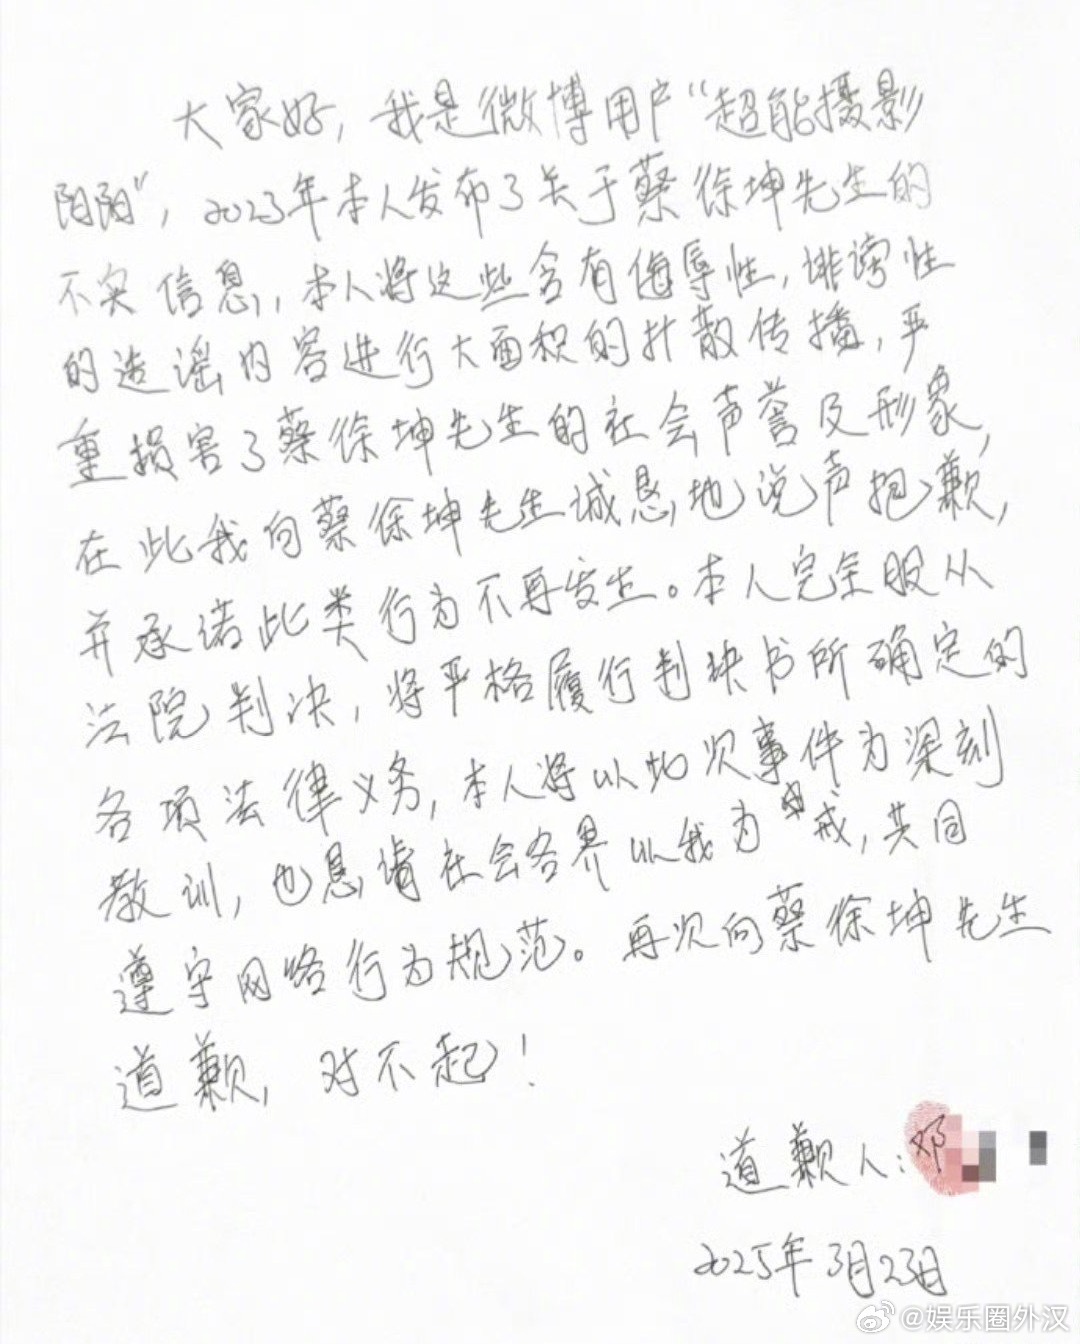 大家好，我是微博用户“超能摄影
阳阳”，2023年本人发布了关于蔡徐坤先生的
不实信息，本人将这些含有侮辱性，诽谤性
的造谣内容进行大面积的扑散传播，严
重损害了蔡徐坤先生的社会声誉及形象，
在此我向蔡徐坤先生诚恳地说声抱歉，
并承诺此类行为不再发生。本人完全服从
法院判决，将严格履行判块书所确定的
各项法律义务，本人将以此次事件为深刻
教训，也恳请社会各界以我为戒，共同
遵守网络行为规范。再次向蔡徐坤先生
道歉，对不起！
道歉人：邓
2025年3月23日
@娱乐圈外汉